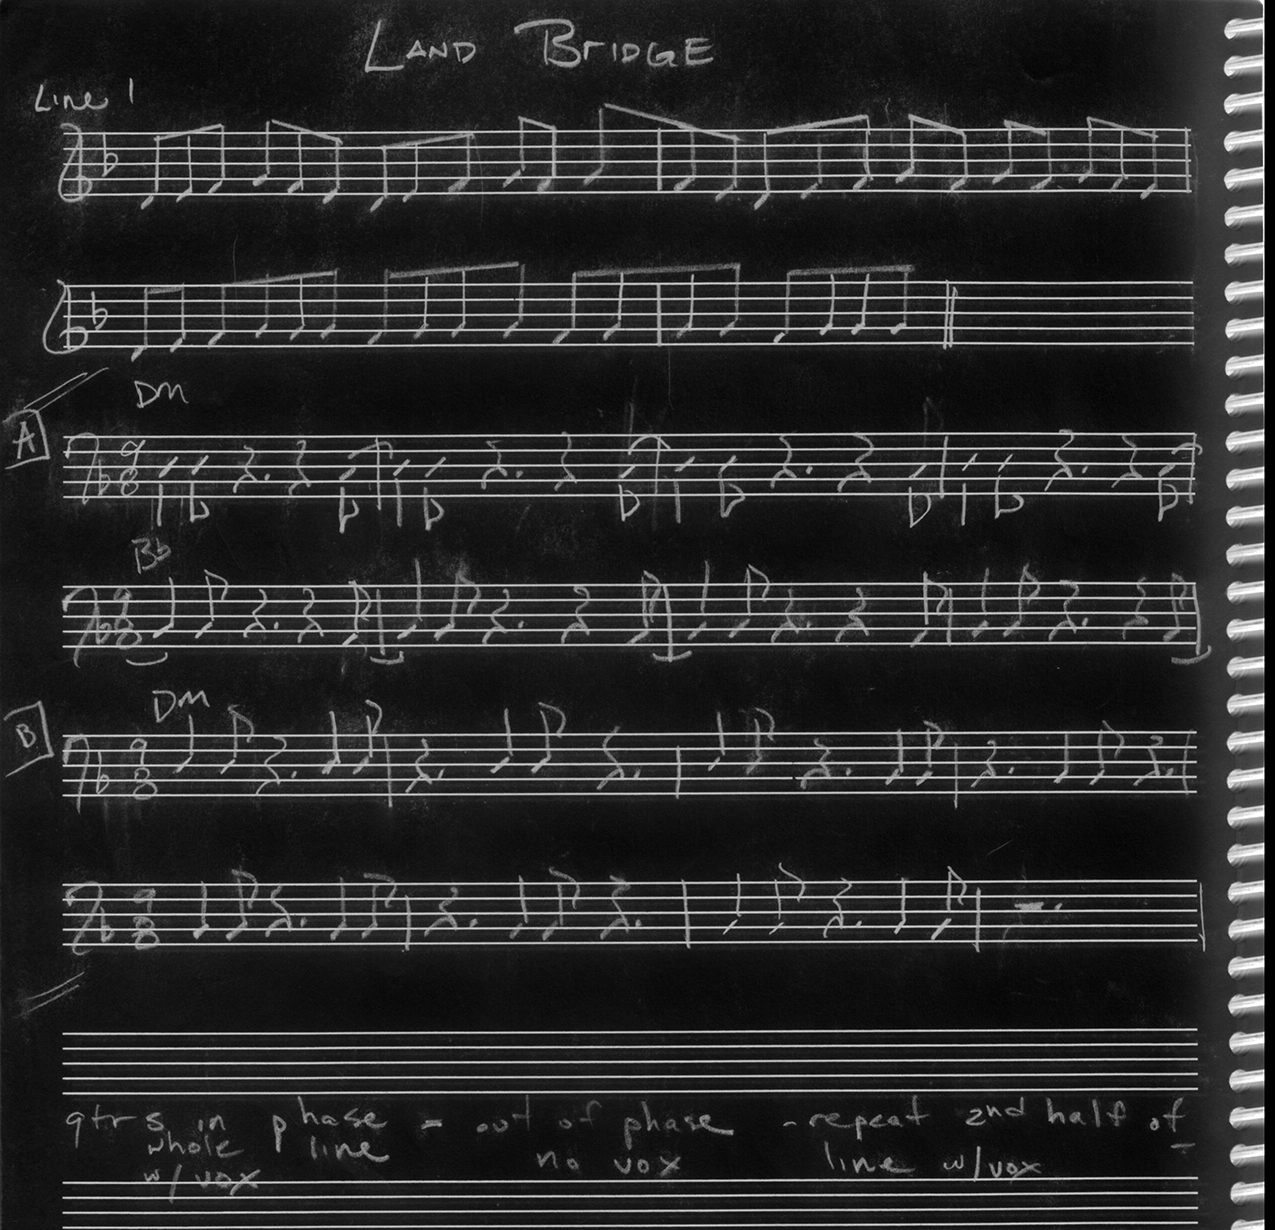 LAND BRIDGE
Line 1
Dm
A
9
8
Bb
9
8
Dm
B
9
8
9
8
gtrs in phase - out of phase - repeat 2nd half of
whole line no vox line w/vox
w/vox